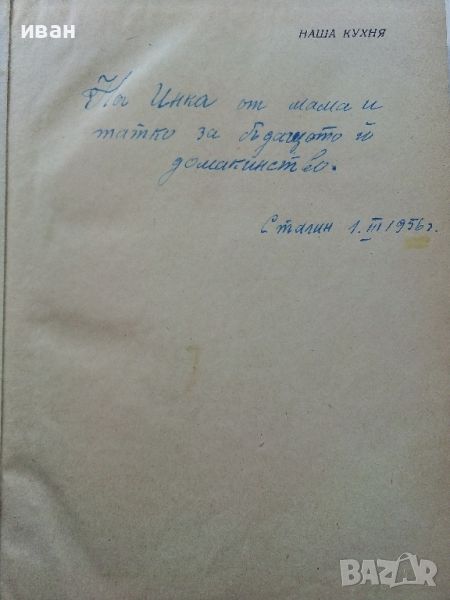 иван
НАША КУХНЯ
На Инка от мама и
татко за бъдащото ѝ
домакинство.
Сталин 1.III 1956г.
BAZAR